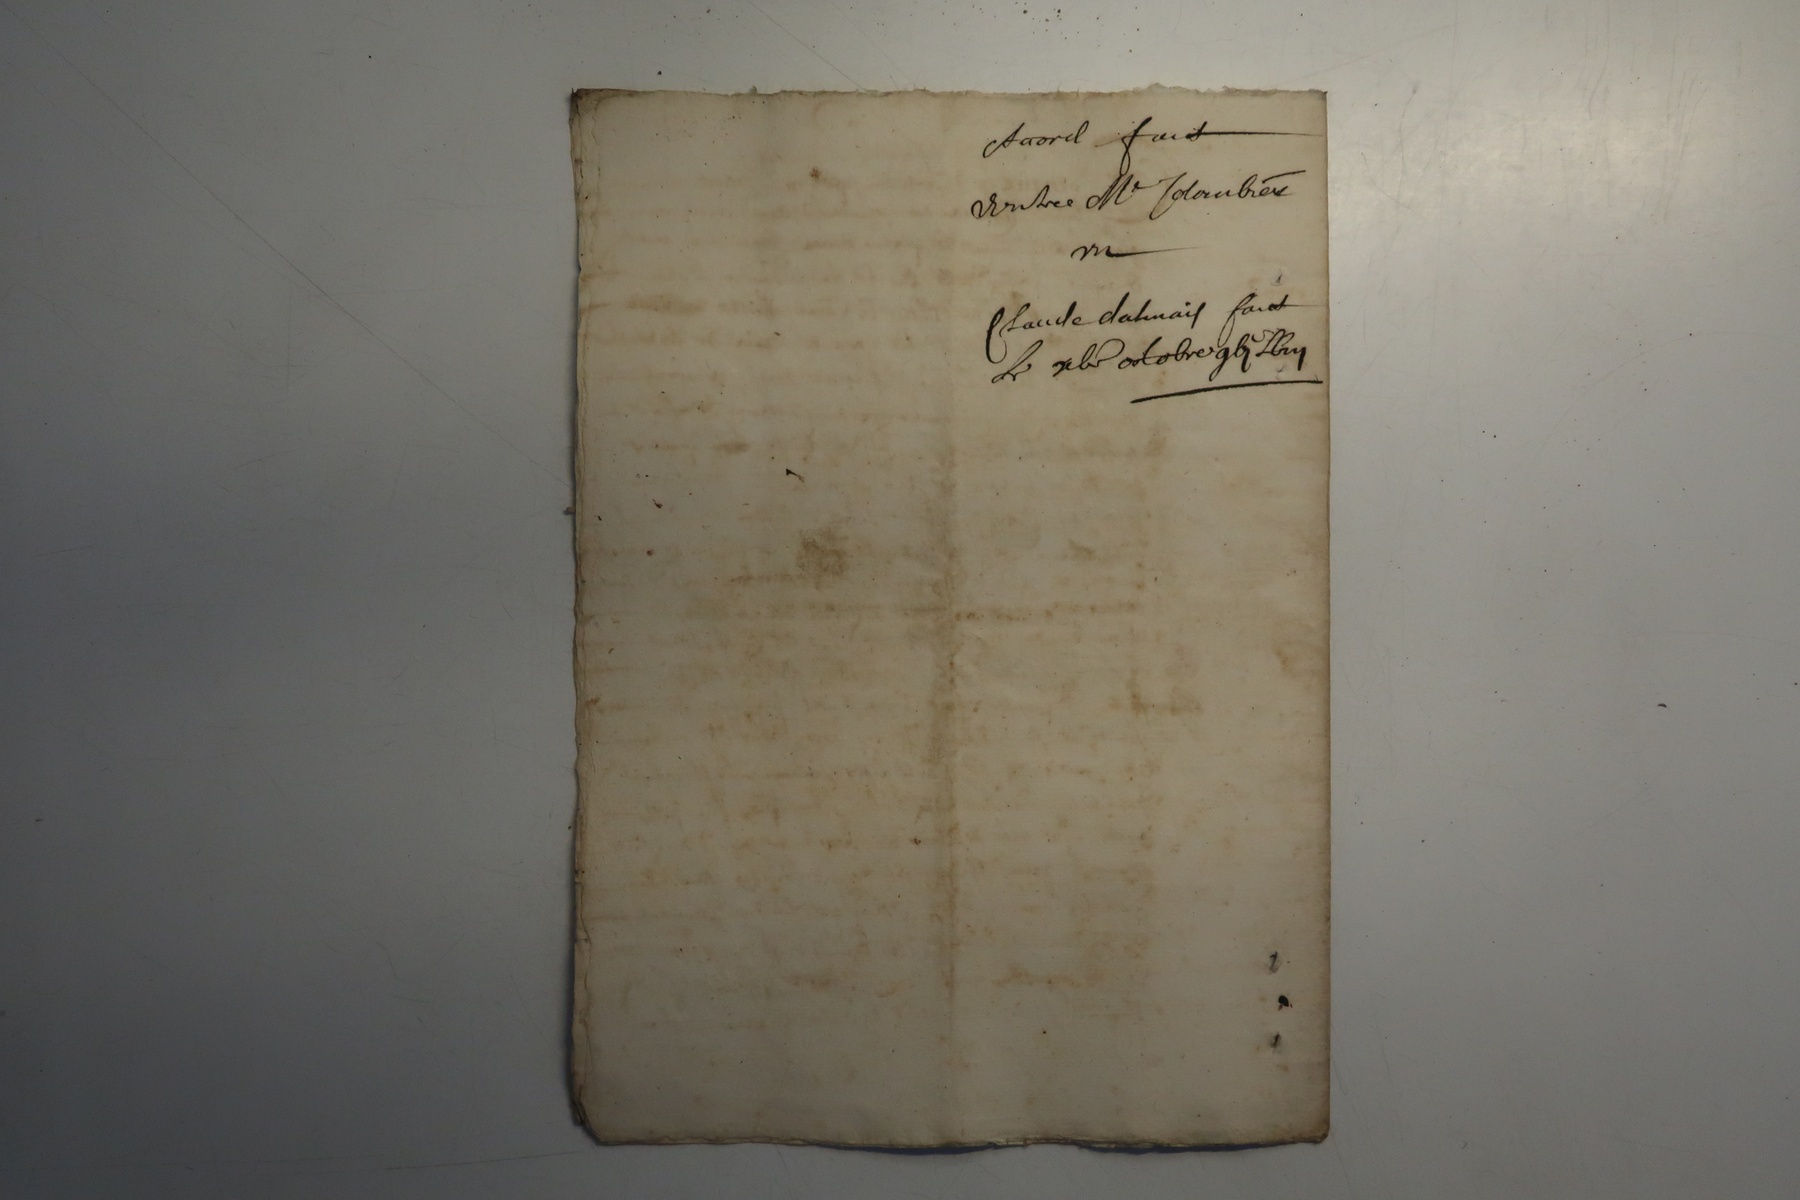 Accord faict
Entre Mr Jdaubrés
Et
Claude dalmais faict
Le octobre